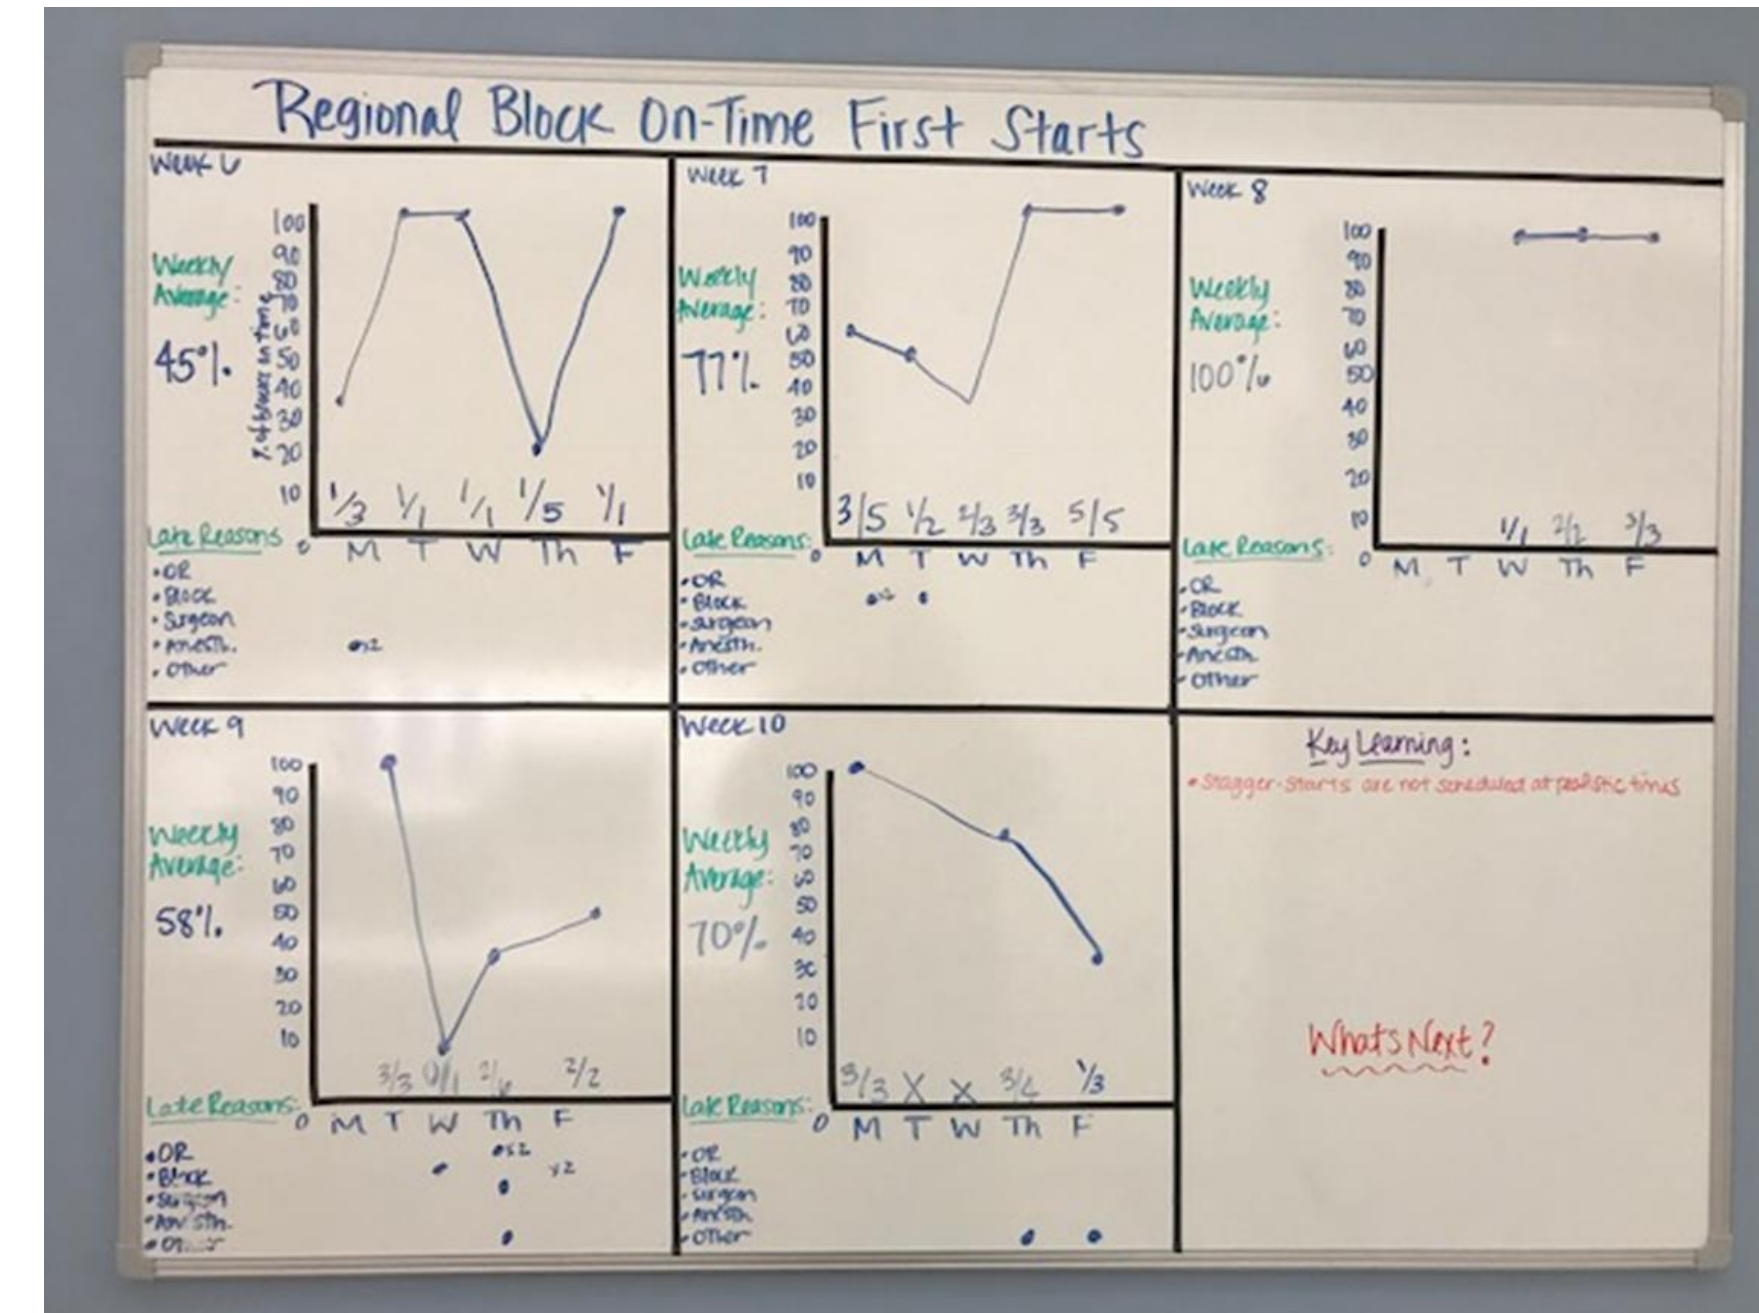 Regional Block On-Time First Starts
Week 6
Weekly
Average:
45%
% of blocks on time
100
90
80
70
60
50
40
30
20
10
0
1/3 1/1 1/1 1/5 1/1
M T W Th F
Late Reasons
• OR
• Block
• Surgeon
• Anesth. x2
• Other
Week 7
Weekly
Average:
77%
100
90
80
70
60
50
40
30
20
10
0
3/5 1/2 2/3 3/3 5/5
M T W Th F
Late Reasons:
• OR
• Block x2
• Surgeon
• Anesth.
• Other
Week 8
Weekly
Average:
100%
100
90
80
70
60
50
40
30
20
10
0
1/1 2/2 3/3
M T W Th F
Late Reasons:
• OR
• Block
• Surgeon
• Anesth
• Other
Week 9
Weekly
Average:
58%
100
90
80
70
60
50
40
30
20
10
0
3/3 0/1 2/6 2/2
M T W Th F
Late Reasons:
• OR x2
• Block x2
• Surgeon
• Anesth.
• Other
Week 10
Weekly
Average:
70%
100
90
80
70
60
50
40
30
20
10
0
3/3 X X 3/4 1/3
M T W Th F
Late Reasons:
• OR
• Block
• Surgeon
• Anesth
• Other
Key Learning:
• Stagger-Starts are not scheduled at realistic times
Whats Next?